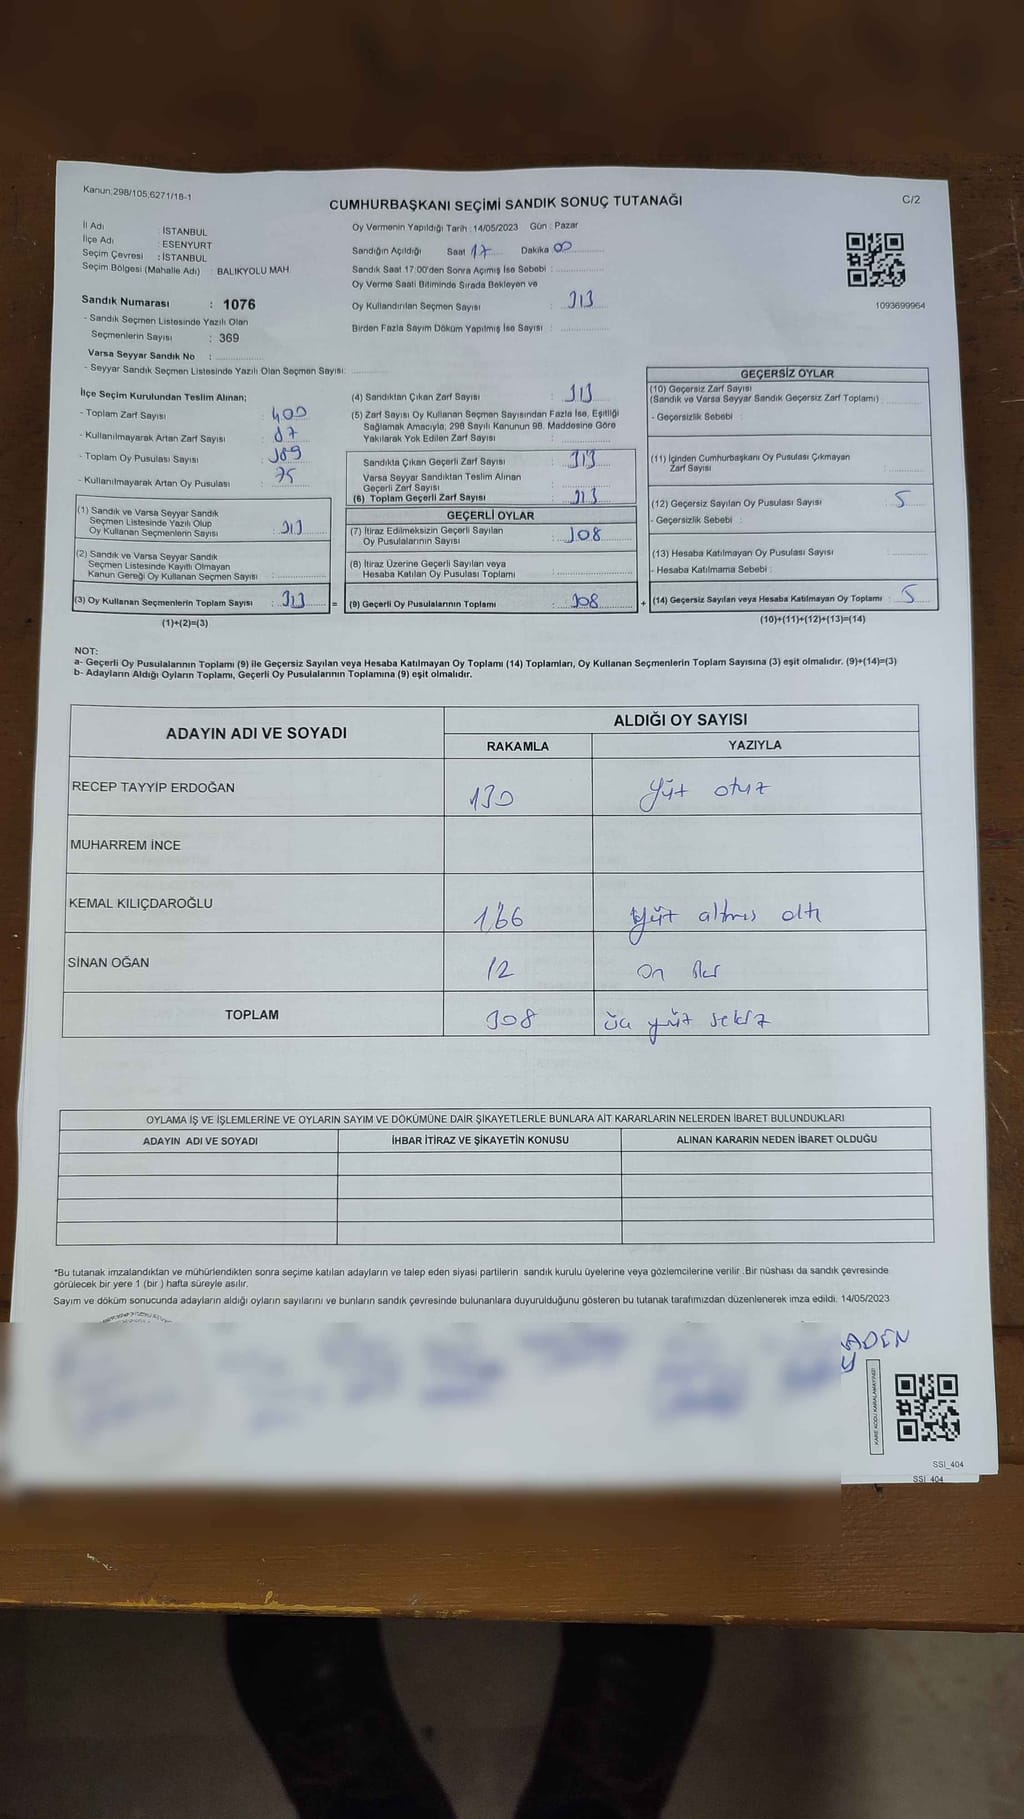 Kanun:298/105,6271/18-1
CUMHURBAŞKANI SEÇİMİ SANDIK SONUÇ TUTANAĞI
C/2
İl Adı : İSTANBUL
İlçe Adı : ESENYURT
Seçim Çevresi : İSTANBUL
Seçim Bölgesi (Mahalle Adı) : BALIKYOLU MAH.
Sandık Numarası : 1076
- Sandık Seçmen Listesinde Yazılı Olan
Seçmenlerin Sayısı : 369
Varsa Seyyar Sandık No :
- Seyyar Sandık Seçmen Listesinde Yazılı Olan Seçmen Sayısı:
Oy Vermenin Yapıldığı Tarih : 14/05/2023 Gün : Pazar
Sandığın Açıldığı Saat 17 Dakika 00
Sandık Saat 17:00'den Sonra Açılmış İse Sebebi :
Oy Verme Saati Bitiminde Sırada Bekleyen ve
Oy Kullandırılan Seçmen Sayısı : 313
Birden Fazla Sayım Döküm Yapılmış İse Sayısı :
1093699964
İlçe Seçim Kurulundan Teslim Alınan;
- Toplam Zarf Sayısı : 400
- Kullanılmayarak Artan Zarf Sayısı : 87
- Toplam Oy Pusulası Sayısı :
- Kullanılmayarak Artan Oy Pusulası : 75
(1) Sandık ve Varsa Seyyar Sandık
Seçmen Listesinde Yazılı Olup
Oy Kullanan Seçmenlerin Sayısı : 313
(2) Sandık ve Varsa Seyyar Sandık
Seçmen Listesinde Kayıtlı Olmayan
Kanun Gereği Oy Kullanan Seçmen Sayısı :
(3) Oy Kullanan Seçmenlerin Toplam Sayısı : 313 =
(1)+(2)=(3)
(4) Sandıktan Çıkan Zarf Sayısı : 313
(5) Zarf Sayısı Oy Kullanan Seçmen Sayısından Fazla İse, Eşitliği
Sağlamak Amacıyla; 298 Sayılı Kanunun 98. Maddesine Göre
Yakılarak Yok Edilen Zarf Sayısı :
Sandıkta Çıkan Geçerli Zarf Sayısı : 313
Varsa Seyyar Sandıktan Teslim Alınan
Geçerli Zarf Sayısı :
(6) Toplam Geçerli Zarf Sayısı : 313
GEÇERLİ OYLAR
(7) İtiraz Edilmeksizin Geçerli Sayılan
Oy Pusulalarının Sayısı : 308
(8) İtiraz Üzerine Geçerli Sayılan veya
Hesaba Katılan Oy Pusulası Toplamı :
(9) Geçerli Oy Pusulalarının Toplamı : 308 +
GEÇERSİZ OYLAR
(10) Geçersiz Zarf Sayısı
(Sandık ve Varsa Seyyar Sandık Geçersiz Zarf Toplamı) :
- Geçersizlik Sebebi :
(11) İçinden Cumhurbaşkanı Oy Pusulası Çıkmayan
Zarf Sayısı :
(12) Geçersiz Sayılan Oy Pusulası Sayısı : 5
- Geçersizlik Sebebi :
(13) Hesaba Katılmayan Oy Pusulası Sayısı :
- Hesaba Katılmama Sebebi :
(14) Geçersiz Sayılan veya Hesaba Katılmayan Oy Toplamı : 5
(10)+(11)+(12)+(13)=(14)
NOT:
a- Geçerli Oy Pusulalarının Toplamı (9) ile Geçersiz Sayılan veya Hesaba Katılmayan Oy Toplamı (14) Toplamları, Oy Kullanan Seçmenlerin Toplam Sayısına (3) eşit olmalıdır. (9)+(14)=(3)
b- Adayların Aldığı Oyların Toplamı, Geçerli Oy Pusulalarının Toplamına (9) eşit olmalıdır.
ADAYIN ADI VE SOYADI
ALDIĞI OY SAYISI
RAKAMLA YAZIYLA
RECEP TAYYİP ERDOĞAN 130 yüz otuz
MUHARREM İNCE
KEMAL KILIÇDAROĞLU 166 yüz altmış altı
SİNAN OĞAN 12 on iki
TOPLAM 308 üç yüz sekiz
OYLAMA İŞ VE İŞLEMLERİNE VE OYLARIN SAYIM VE DÖKÜMÜNE DAİR ŞİKAYETLERLE BUNLARA AİT KARARLARIN NELERDEN İBARET BULUNDUKLARI
ADAYIN ADI VE SOYADI İHBAR İTİRAZ VE ŞİKAYETİN KONUSU ALINAN KARARIN NEDEN İBARET OLDUĞU
*Bu tutanak imzalandıktan ve mühürlendikten sonra seçime katılan adayların ve talep eden siyasi partilerin sandık kurulu üyelerine veya gözlemcilerine verilir. Bir nüshası da sandık çevresinde
görülecek bir yere 1 (bir ) hafta süreyle asılır.
Sayım ve döküm sonucunda adayların aldığı oyların sayılarını ve bunların sandık çevresinde bulunanlara duyurulduğunu gösteren bu tutanak tarafımızdan düzenlenerek imza edildi. 14/05/2023
ADEN
KARE KODU KARALAMAYINIZ!
SSI_404
SSI_404